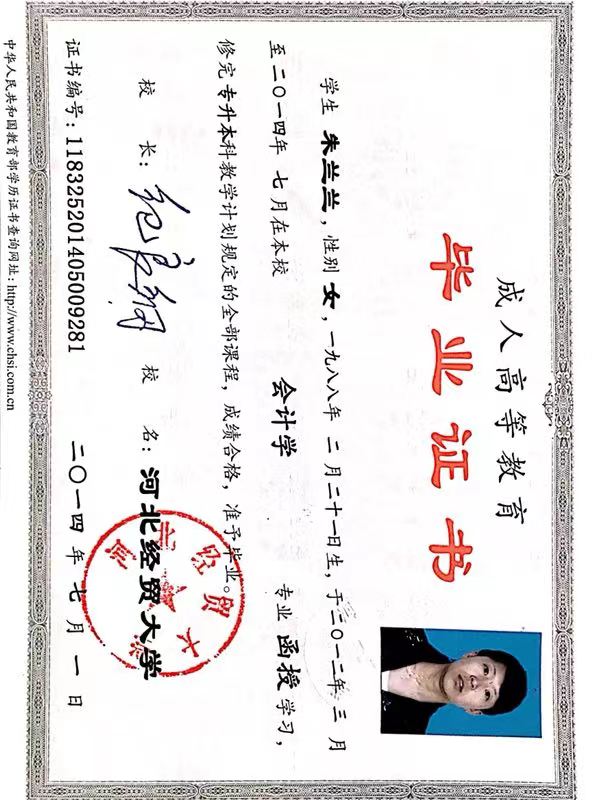 成人高等教育
毕业证书
学生 朱兰兰，性别 女，一九八八年 二月二十一日生，于二〇一二年 三月
至二〇一四年 七月在本校 会计学 专业 函授 学习，
修完 专升本科教学计划规定的全部课程，成绩合格，准予毕业。
校 长： 校 名：河北经贸大学
证书编号：118325201405009281 二〇一四年 七月 一日
中华人民共和国教育部学历证书查询网址：http://www.chsi.com.cn